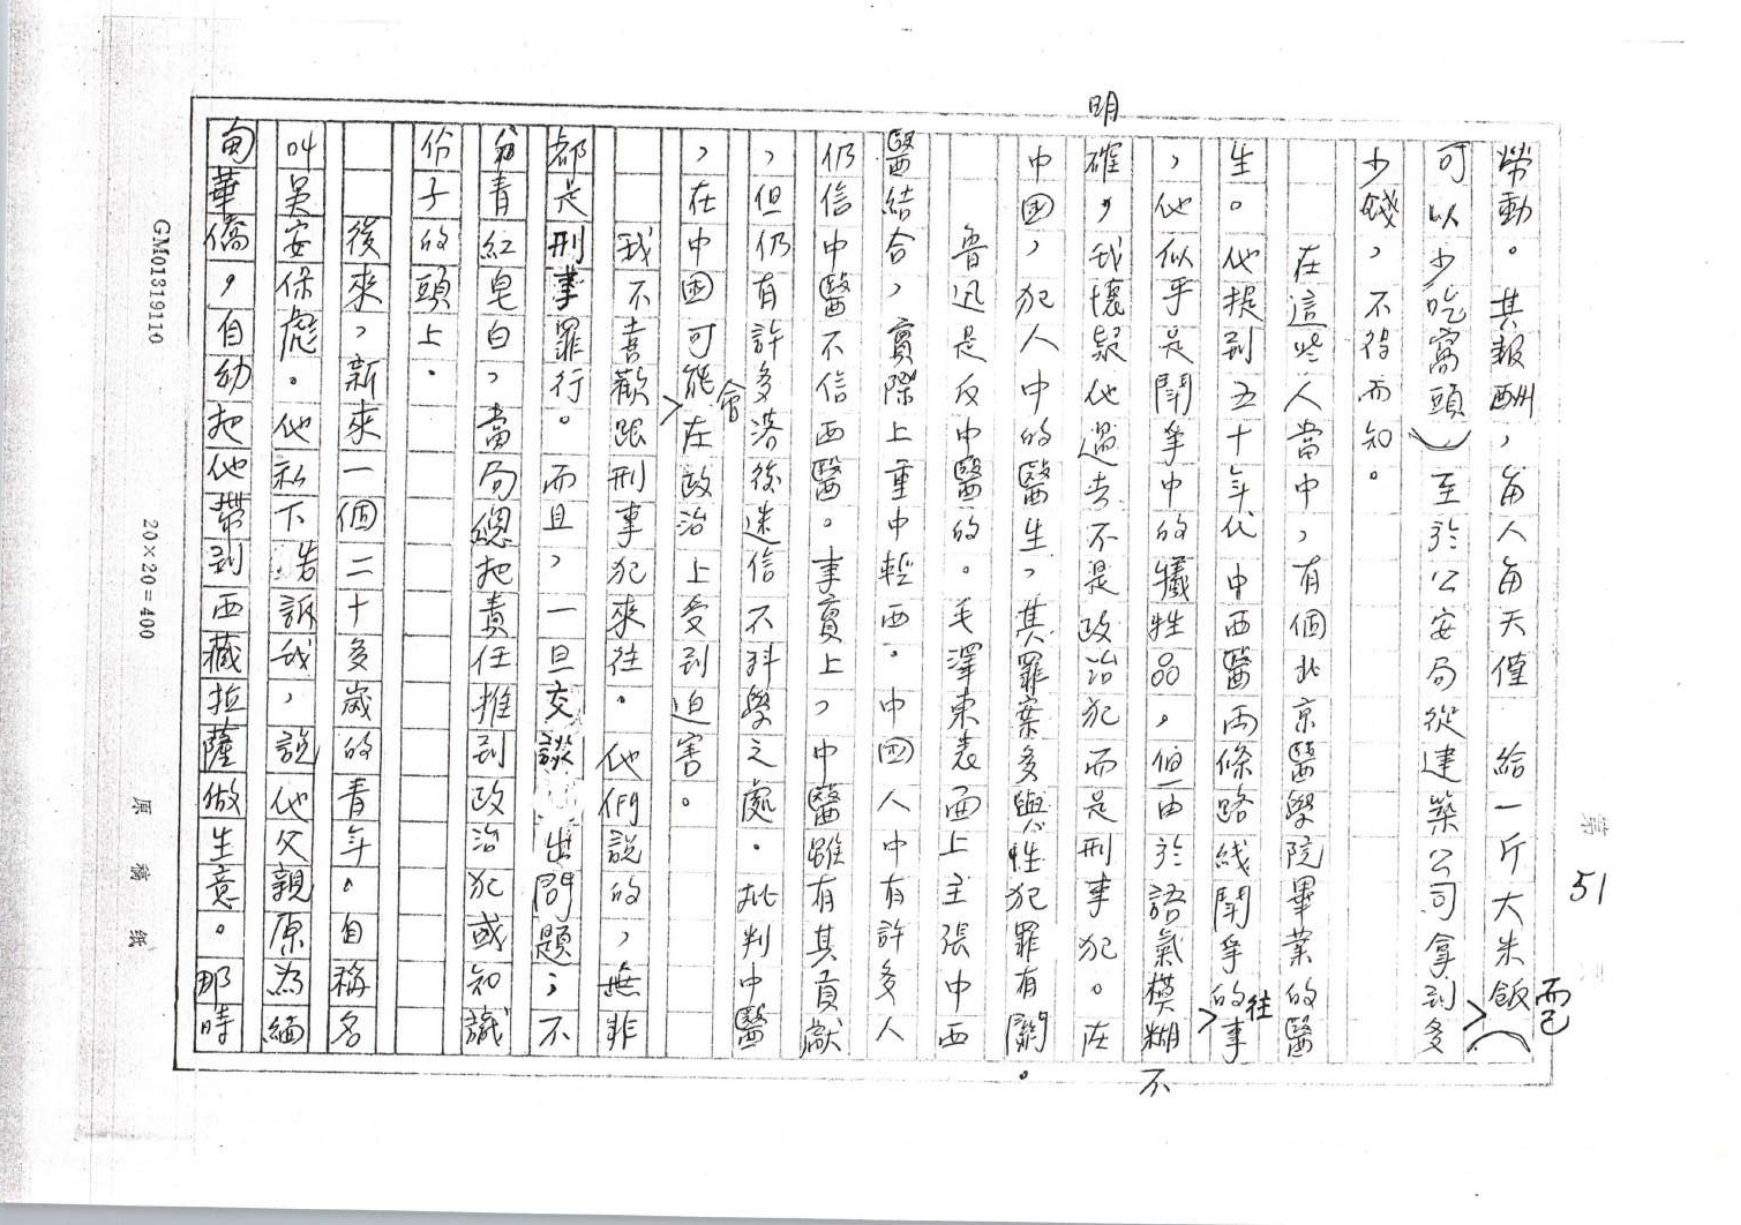 第 51
勞動。其報酬，每人每天僅給一斤大米飯而已（
可以少吃窩頭）至於公安局從建築公司拿到多
少錢，不得而知。
在這些人當中，有個北京醫學院畢業的醫
生。他提到五十年代中西醫兩條路綫鬥爭的往事
，他似乎是鬥爭中的犧牲品，但由於語氣模糊不
明確，我懷疑他過去不是政治犯而是刑事犯。在
中国，犯人中的醫生，其罪案多與性犯罪有關。
魯迅是反中醫的。毛澤東表面上主張中西
醫結合，實際上重中輕西。中国人中有許多人
仍信中醫不信西醫。事實上，中醫雖有其貢獻
，但仍有許多落後迷信不科學之處。批判中醫
，在中国可能會在政治上受到迫害。
我不喜歡跟刑事犯來往。他們說的，無非
都是刑事罪行。而且，一旦交談出問題；不
分青紅皂白，當局總把責任推到政治犯或知識
份子的頭上。
後來，新來一個二十多歲的青年。自稱名
叫吴安保彪。他私下告訴我，說他父親原為緬
甸華僑，自幼把他帶到西藏拉薩做生意。那時
GM01319110 20×20=400 原稿紙